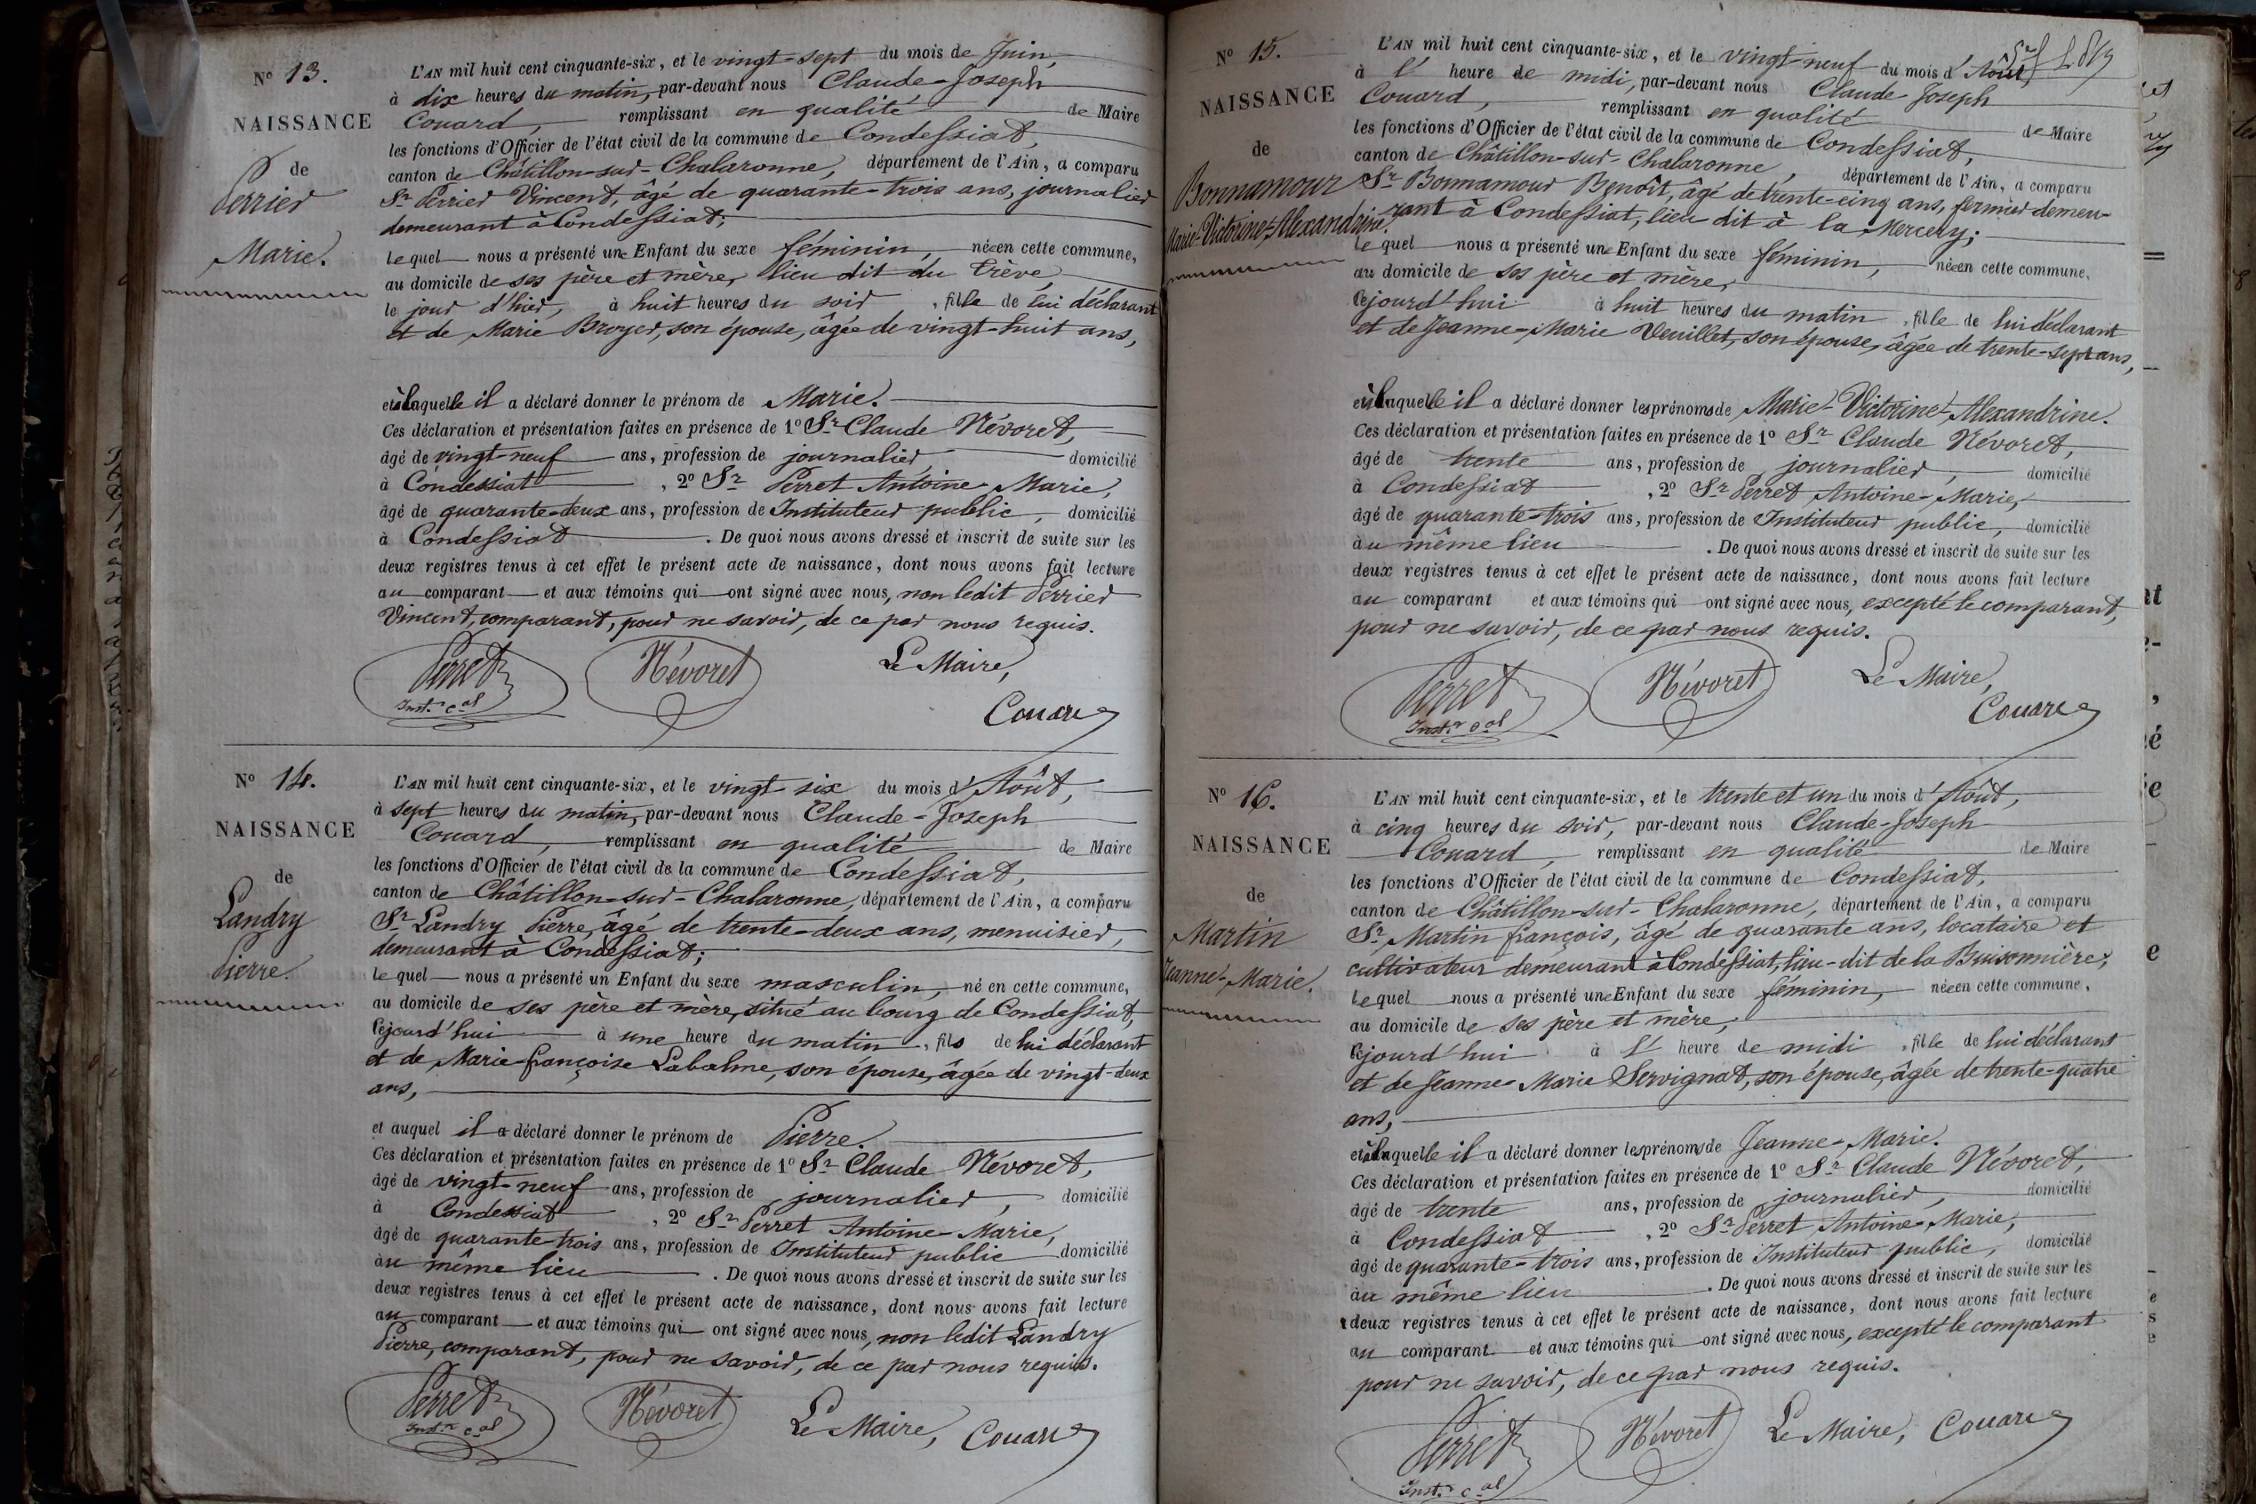 N° 13.
NAISSANCE
de
Perrier
Marie.
L'AN mil huit cent cinquante-six, et le vingt-sept du mois de Juin,
à dix heures du matin, par-devant nous Claude-Joseph
Couard, remplissant en qualité de Maire
les fonctions d'Officier de l'état civil de la commune de Condessiat,
canton de Châtillon-sur-Chalaronne, département de l'Ain, a comparu
Sr Perrier Vincent, âgé de quarante-trois ans, journalier
demeurant à Condessiat;
lequel nous a présenté une Enfant du sexe féminin, née en cette commune,
au domicile de ses père et mère, lieu dit du Trève,
le jour d'hier, à huit heures du soir, fille de lui déclarant
et de Marie Broyer, son épouse, âgée de vingt-huit ans,
et à laquelle il a déclaré donner le prénom de Marie.
Ces déclaration et présentation faites en présence de 1° Sr Claude Névoret,
âgé de vingt-neuf ans, profession de journalier, domicilié
à Condessiat, 2° Sr Perret Antoine-Marie,
âgé de quarante-deux ans, profession de Instituteur public, domicilié
à Condessiat. De quoi nous avons dressé et inscrit de suite sur les
deux registres tenus à cet effet le présent acte de naissance, dont nous avons fait lecture
au comparant et aux témoins qui ont signé avec nous, non ledit Perrier
Vincent, comparant, pour ne savoir, de ce par nous requis.
Perret Névoret Le Maire,
Instr cal
Couard
N° 14.
NAISSANCE
de
Landry
Pierre.
L'AN mil huit cent cinquante-six, et le vingt-six du mois d'Août,
à sept heures du matin, par-devant nous Claude-Joseph
Couard, remplissant en qualité de Maire
les fonctions d'Officier de l'état civil de la commune de Condessiat,
canton de Châtillon-sur-Chalaronne, département de l'Ain, a comparu
Sr Landry Pierre, âgé de trente-deux ans, menuisier,
demeurant à Condessiat;
lequel nous a présenté un Enfant du sexe masculin, né en cette commune,
au domicile de ses père et mère, situé au bourg de Condessiat,
cejourd'hui à une heure du matin, fils de lui déclarant
et de Marie-françoise Labalme, son épouse, âgée de vingt-deux
ans,
et auquel il a déclaré donner le prénom de Pierre.
Ces déclaration et présentation faites en présence de 1° Sr Claude Névoret,
âgé de vingt-neuf ans, profession de journalier, domicilié
à Condessiat, 2° Sr Perret Antoine-Marie,
âgé de quarante-trois ans, profession de Instituteur public domicilié
au même lieu. De quoi nous avons dressé et inscrit de suite sur les
deux registres tenus à cet effet le présent acte de naissance, dont nous avons fait lecture
au comparant et aux témoins qui ont signé avec nous, non ledit Landry
Pierre, comparant, pour ne savoir, de ce par nous requis.
Perret Névoret Le Maire, Couard
Instr cal
N° 15.
NAISSANCE
de
Bonnamour
Marie-Victorine-Alexandrine.
L'AN mil huit cent cinquante-six, et le vingt-neuf du mois d'Août,
à l'heure de midi, par-devant nous Claude-Joseph
Couard, remplissant en qualité de Maire
les fonctions d'Officier de l'état civil de la commune de Condessiat,
canton de Châtillon-sur-Chalaronne, département de l'Ain, a comparu
Sr Bonnamour Benoît, âgé de trente-cinq ans, fermier demeu-
rant à Condessiat, lieu dit à la Mercery;
lequel nous a présenté une Enfant du sexe féminin, née en cette commune,
au domicile de ses père et mère,
cejourd'hui à huit heures du matin, fille de lui déclarant
et de Jeanne-Marie Veuillet, son épouse, âgée de trente-sept ans,
et à laquelle il a déclaré donner les prénoms de Marie-Victorine-Alexandrine.
Ces déclaration et présentation faites en présence de 1° Sr Claude Névoret,
âgé de trente ans, profession de journalier, domicilié
à Condessiat, 2° Sr Perret Antoine-Marie,
âgé de quarante-trois ans, profession de Instituteur public, domicilié
au même lieu. De quoi nous avons dressé et inscrit de suite sur les
deux registres tenus à cet effet le présent acte de naissance, dont nous avons fait lecture
au comparant et aux témoins qui ont signé avec nous, excepté le comparant,
pour ne savoir, de ce par nous requis.
Perret Névoret Le Maire,
Instr cal
Couard
N° 16.
NAISSANCE
de
Martin
Jeanne-Marie.
L'AN mil huit cent cinquante-six, et le trente et un du mois d'Août,
à cinq heures du soir, par-devant nous Claude-Joseph
Couard, remplissant en qualité de Maire
les fonctions d'Officier de l'état civil de la commune de Condessiat,
canton de Châtillon-sur-Chalaronne, département de l'Ain, a comparu
Sr Martin françois, âgé de quarante ans, locataire et
cultivateur demeurant à Condessiat, lieu-dit de la Buisonnière;
lequel nous a présenté une Enfant du sexe féminin, née en cette commune,
au domicile de ses père et mère,
cejourd'hui à l'heure de midi, fille de lui déclarant
et de Jeanne-Marie Servignat, son épouse, âgée de trente-quatre
ans,
et à laquelle il a déclaré donner les prénoms de Jeanne-Marie.
Ces déclaration et présentation faites en présence de 1° Sr Claude Névoret,
âgé de trente ans, profession de journalier, domicilié
à Condessiat, 2° Sr Perret Antoine-Marie,
âgé de quarante-trois ans, profession de Instituteur public, domicilié
au même lieu. De quoi nous avons dressé et inscrit de suite sur les
deux registres tenus à cet effet le présent acte de naissance, dont nous avons fait lecture
au comparant et aux témoins qui ont signé avec nous, excepté le comparant
pour ne savoir, de ce par nous requis.
Perret Névoret Le Maire, Couard
Instr cal